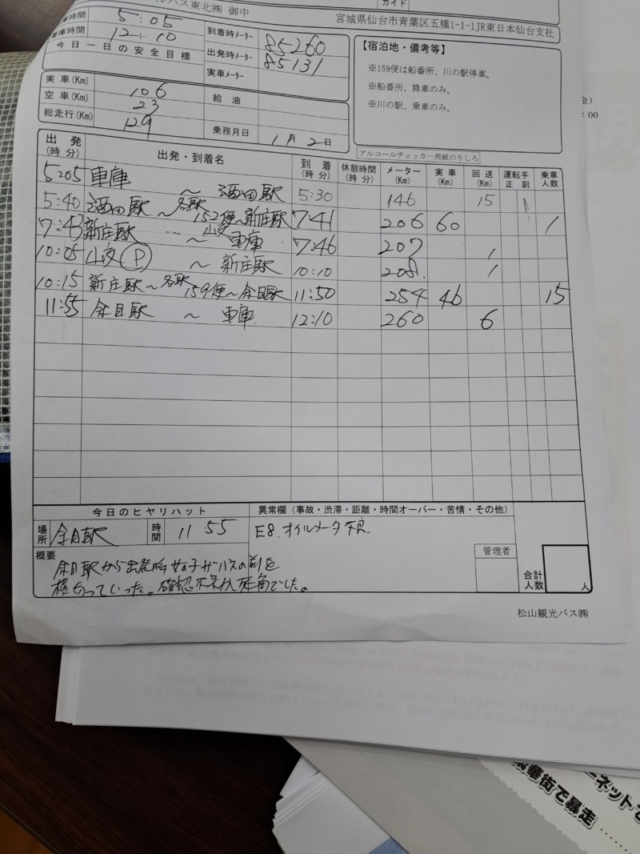 バス東北㈱ 御中
ガイド
宮城県仙台市青葉区五橋1-1-1JR東日本仙台支社
時間 5:05
車時間 12:10
到着時メーター 85260
出発時メーター 85131
今日一日の安全目標
実車メーター
【宿泊地・備考等】
※159便は船番所、川の駅停車。
※船番所、降車のみ。
※川の駅、乗車のみ。
実車(Km) 106
空車(Km) 23
給油
総走行(Km) 129
乗務月日 1月2日
アルコールチェッカー用紙のりしろ
出発(時分) 出発・到着名 到着(時分) 休憩時間(時分) メーター(Km) 実車(Km) 回送(Km) 運転手 正 副 乗車人数
5:05 車庫 ～ 酒田駅 5:30 146 15
5:40 酒田駅～各駅 152便～新庄駅 7:41 206 60 1
7:43 新庄駅 ～ 車庫 7:46 207 1
10:05 山交Ⓟ ～ 新庄駅 10:10 208 1
10:15 新庄駅～各駅 159便～余目駅 11:50 254 46 15
11:55 余目駅 ～ 車庫 12:10 260 6
今日のヒヤリハット
異常欄（事故・渋滞・距離・時間オーバー・苦情・その他）
場所 余目駅 時間 11 55
E8.オイルメータ不良
概要
余目駅から出発時 女の子がバスの前を
横切っていった。確認不足、死角でした。
管理者
合計人数 人
松山観光バス㈱
:00
ネットで
華街で暴走